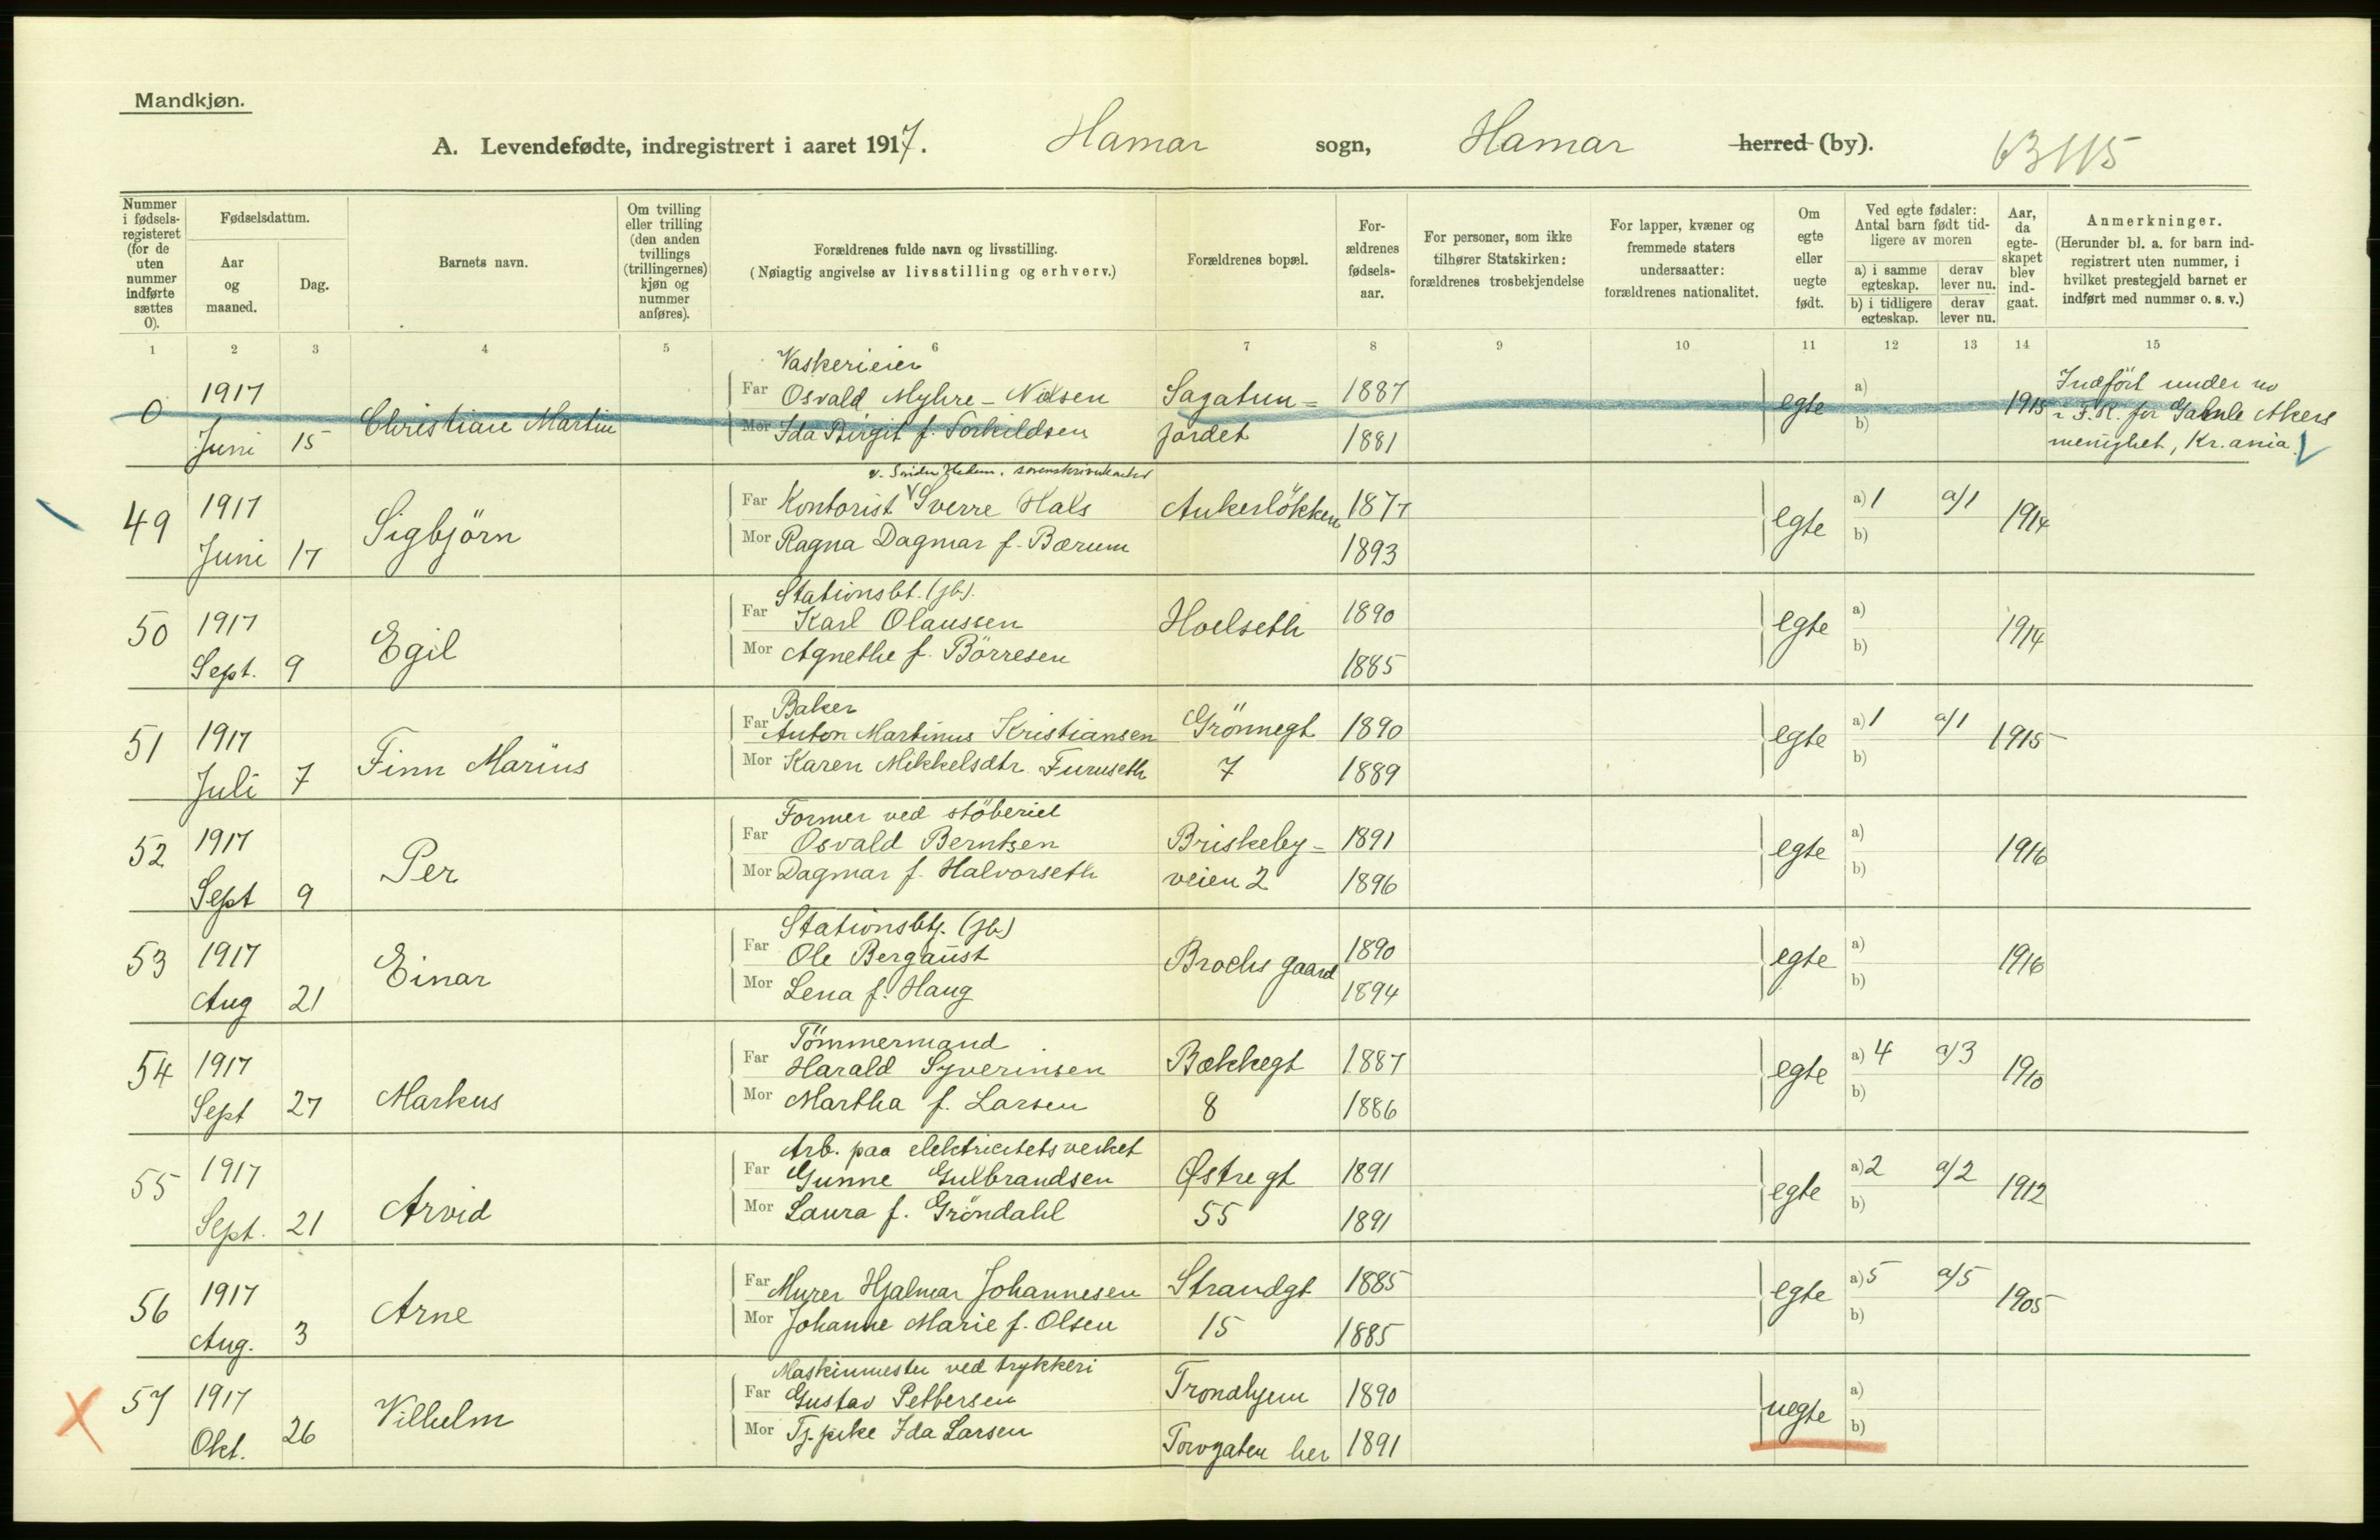 Mandkjøn.
A. Levendefødte, indregistrert i aaret 1917. Hamar sogn, Hamar herred (by). 63115
Nummer i fødselsregisteret (for de uten nummer indførte sættes 0).
Fødselsdatum.
Aar og maaned.
Dag.
Barnets navn.
Om tvilling eller trilling (den anden tvillings (trillingernes) kjøn og nummer anføres).
Forældrenes fulde navn og livsstilling.
(Nøiagtig angivelse av livsstilling og erhverv.)
Forældrenes bopæl.
Forældrenes fødselsaar.
For personer, som ikke tilhører Statskirken: forældrenes trosbekjendelse
For lapper, kvæner og fremmede staters undersaatter: forældrenes nationalitet.
Om egte eller uegte født.
Ved egte fødsler: Antal barn født tidligere av moren
a) i samme egteskap.
derav lever nu.
b) i tidligere egteskap.
derav lever nu.
Aar, da egteskapet blev indgaat.
Anmerkninger.
(Herunder bl. a. for barn indregistrert uten nummer, i hvilket prestegjeld barnet er indført med nummer o. s. v.)
1 2 3 4 5 6 7 8 9 10 11 12 13 14 15
Vaskerieier
0 1917 Far Osvald Myhre-Nilsen Sagatun= 1887 egte a) 1915 Indført under no
Juni 15 Christian Martin Mor Ida Birgit f. Torkildsen jordet 1881 b) F.R. for Gamle Akers
menighet, Kr.ania.
49 1917 Sigbjörn Far Kontorist Sverre Hals Ankerlökken 1877 egte a) 1 a/1 1914
Juni 17 Mor Ragna Dagmar f. Bærum 1893 b)
Stationsbt. (jb).
50 1917 Egil Far Karl Olaussen Hoelseth 1890 egte a) 1914
Sept. 9 Mor Agnethe f. Börresen 1885 b)
Baker
51 1917 Finn Marius Far Anton Martinus Kristiansen Grönnegt 1890 egte a) 1 a/1 1915
Juli 7 Mor Karen Mikkelsdtr. Furuseth 7 1889 b)
Former ved stöberiet
52 1917 Per Far Osvald Berntsen Briskeby= 1891 egte a) 1916
Sept 9 Mor Dagmar f. Halvorseth veien 2 1896 b)
Stationsbtj. (jb)
53 1917 Einar Far Ole Bergaust Brochs gaard 1890 egte a) 1916
Aug 21 Mor Lena f. Haug 1894 b)
Tömmermand
54 1917 Markus Far Harald Syverinsen Bækkegt 1887 egte a) 4 a/3 1910
Sept 27 Mor Martha f. Larsen 8 1886 b)
Arb. paa elektricitetsverket
55 1917 Arvid Far Gunne Gulbrandsen Østregt 1891 egte a) 2 a/2 1912
Sept. 21 Mor Laura f. Gröndahl 55 1891 b)
56 1917 Arne Far Murer Hjalmar Johannesen Strandgt 1885 egte a) 5 a/5 1905
Aug. 3 Mor Johanne Marie f. Olsen 15 1885 b)
Maskinmester ved trykkeri
57 1917 Vilhelm Far Gustav Pettersen Trondhjem 1890 uegte a)
Okt. 26 Mor Tj.pike Ida Larsen Torvgaten her 1891 b)